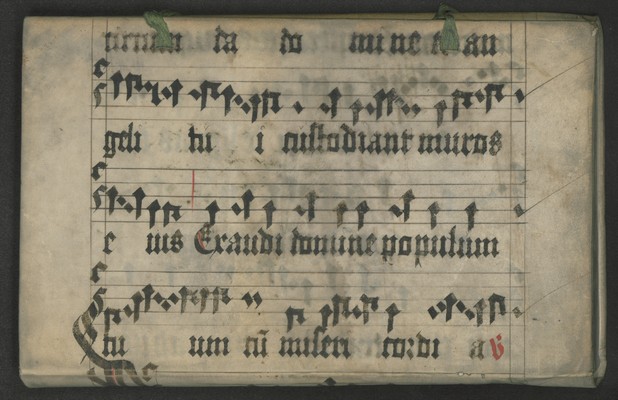 da do mi ne et an
geli tu i custodiant muros
e ius Exaudi domine populum
tu um cū miseri cordi a ℣